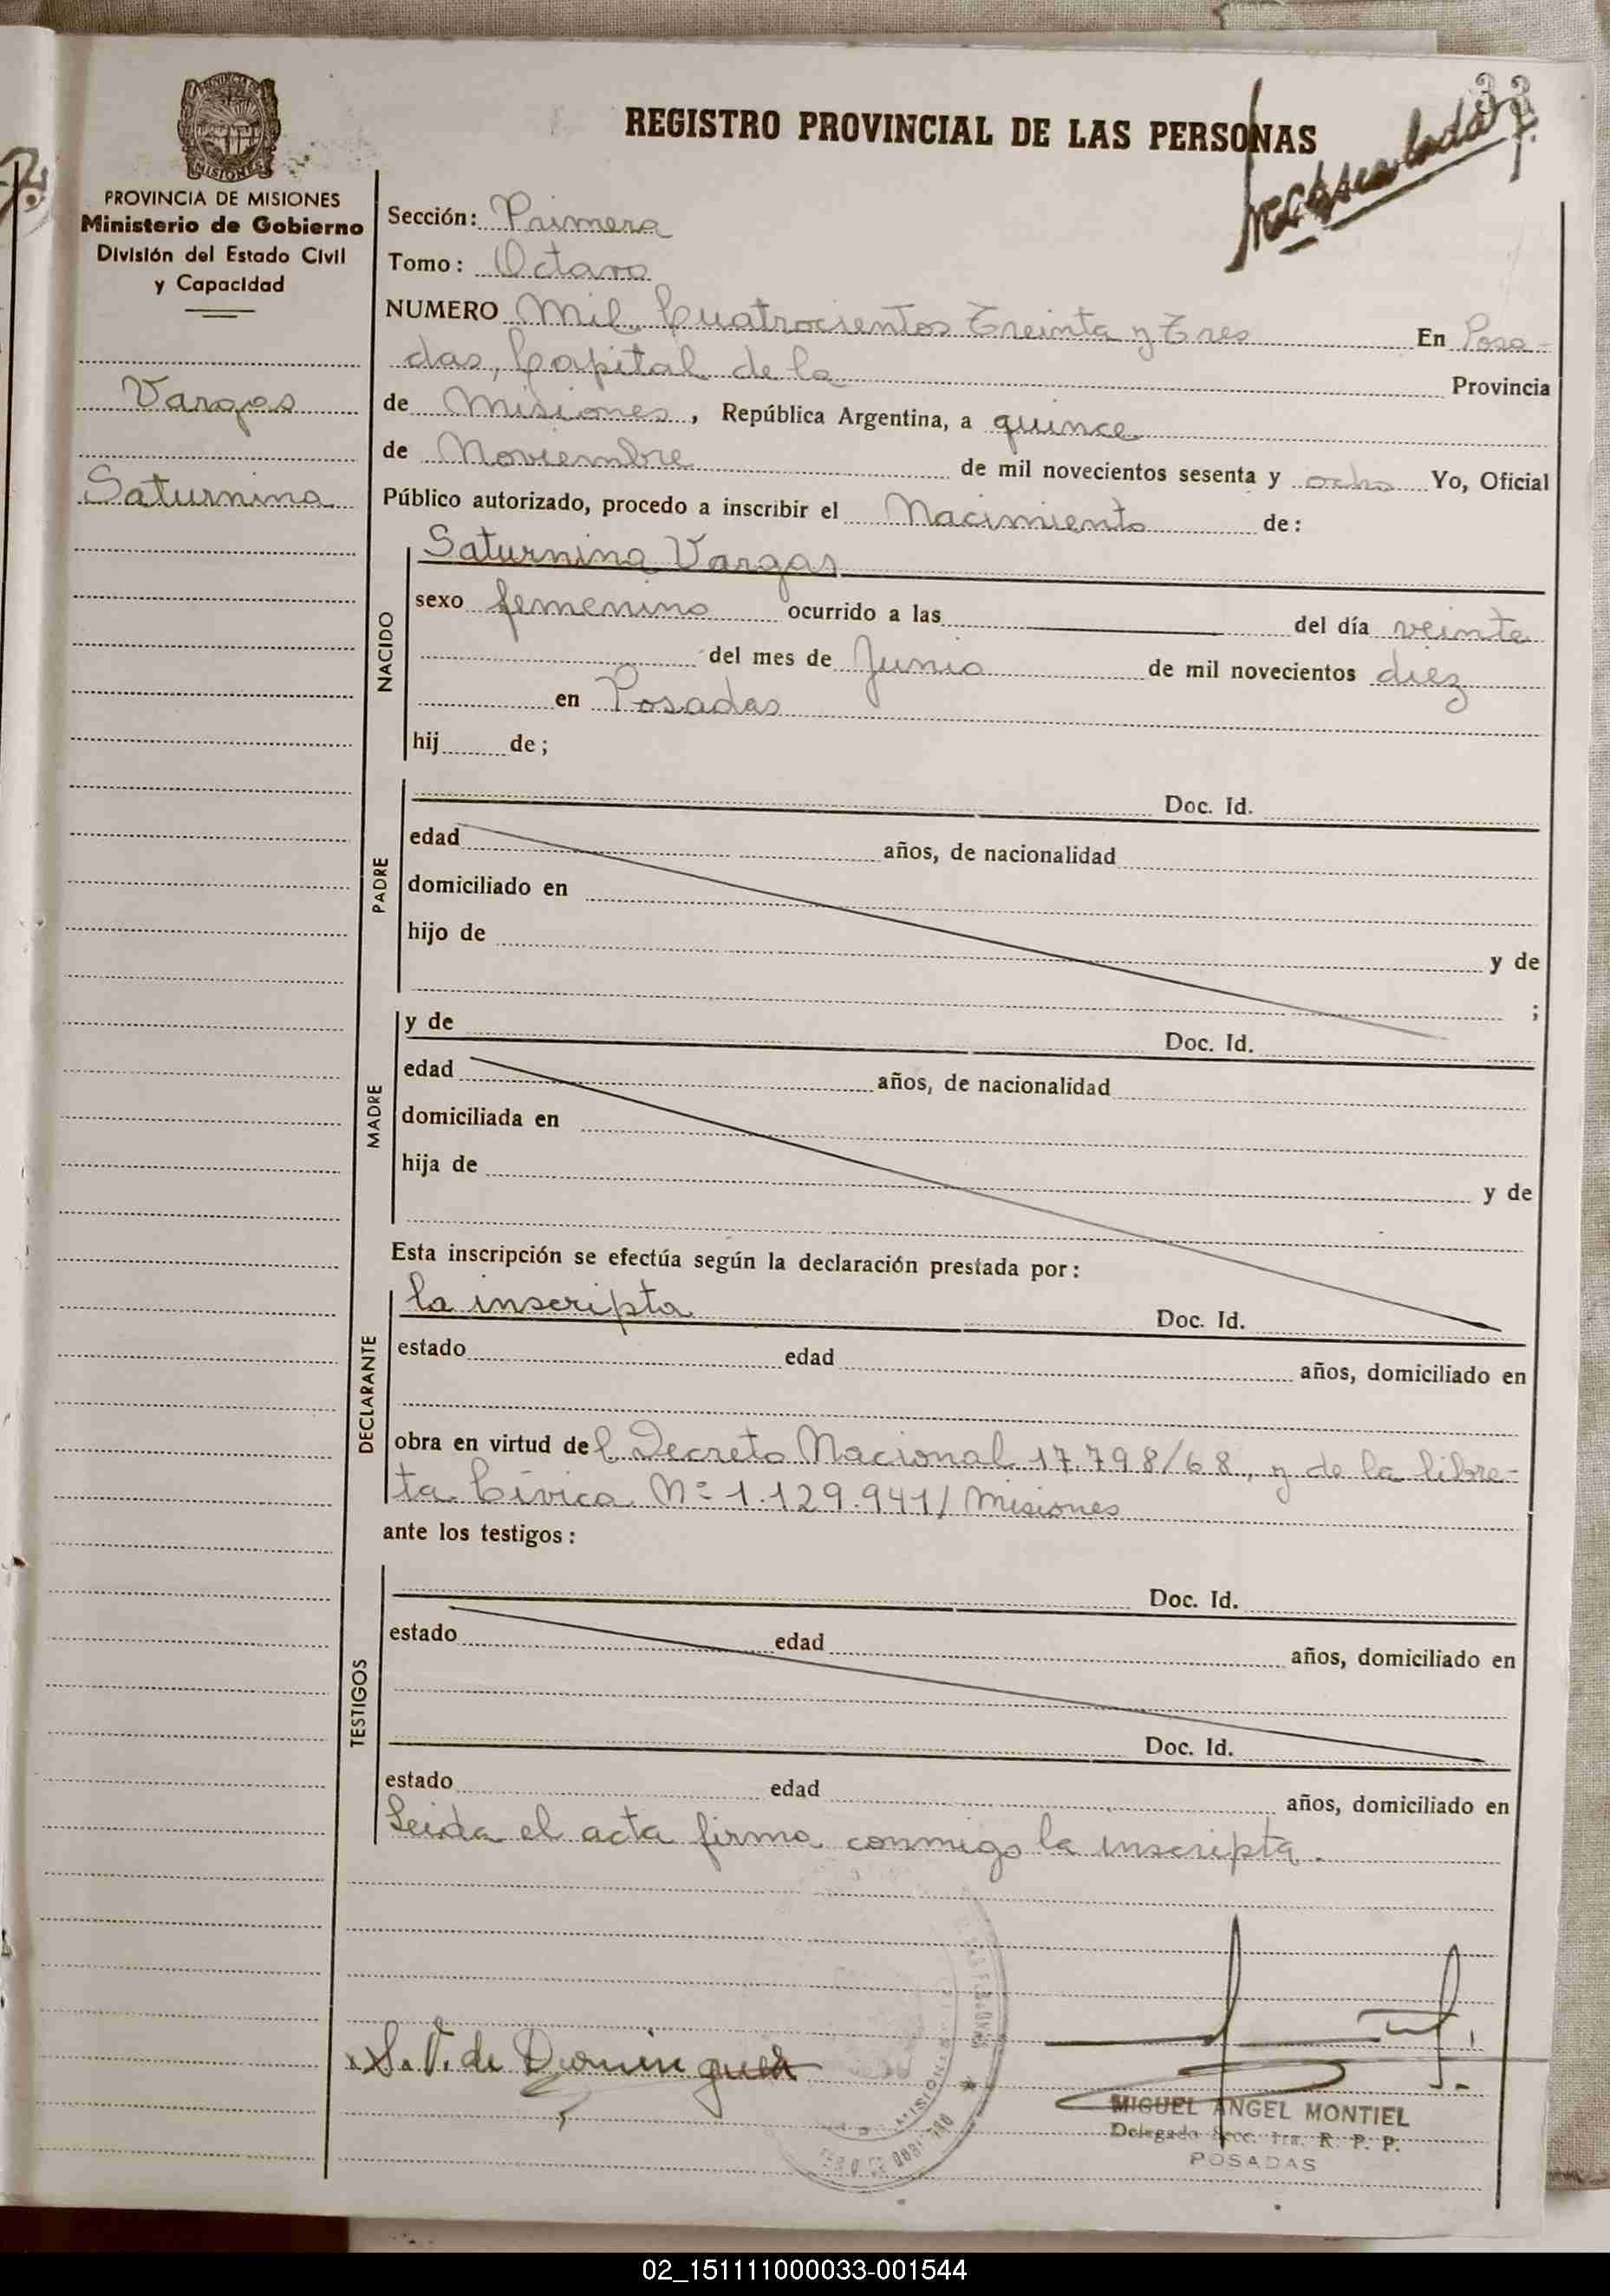 REGISTRO PROVINCIAL DE LAS PERSONAS
33
MISIONES
PROVINCIA DE MISIONES
Ministerio de Gobierno
División del Estado Civil
y Capacidad
Vargas
Saturnina
Sección: Primera
Tomo: Octavo
NUMERO Mil Cuatrocientos Treinta y Tres En Posa-
das, Capital de la Provincia
de Misiones, República Argentina, a quince
de Noviembre de mil novecientos sesenta y ocho Yo, Oficial
Público autorizado, procedo a inscribir el Nacimiento de:
NACIDO
Saturnina Vargas
sexo femenino ocurrido a las del día veinte
del mes de Junio de mil novecientos diez
en Posadas
hij de;
PADRE
Doc. Id.
edad años, de nacionalidad
domiciliado en
hijo de y de
;
MADRE
y de Doc. Id.
edad años, de nacionalidad
domiciliada en
hija de y de
Esta inscripción se efectúa según la declaración prestada por:
DECLARANTE
la inscripta Doc. Id.
estado edad años, domiciliado en
obra en virtud del Decreto Nacional 17.798/68, y de la libre-
ta Cívica Nº 1.129.941/Misiones
ante los testigos:
TESTIGOS
Doc. Id.
estado edad años, domiciliado en
Doc. Id.
estado edad años, domiciliado en
Leida el acta firma conmigo la inscripta.
x S. V. de Dominguez
MIGUEL ANGEL MONTIEL
Delegado Secc. 1ra. R. P. P.
POSADAS
02_151111000033-001544